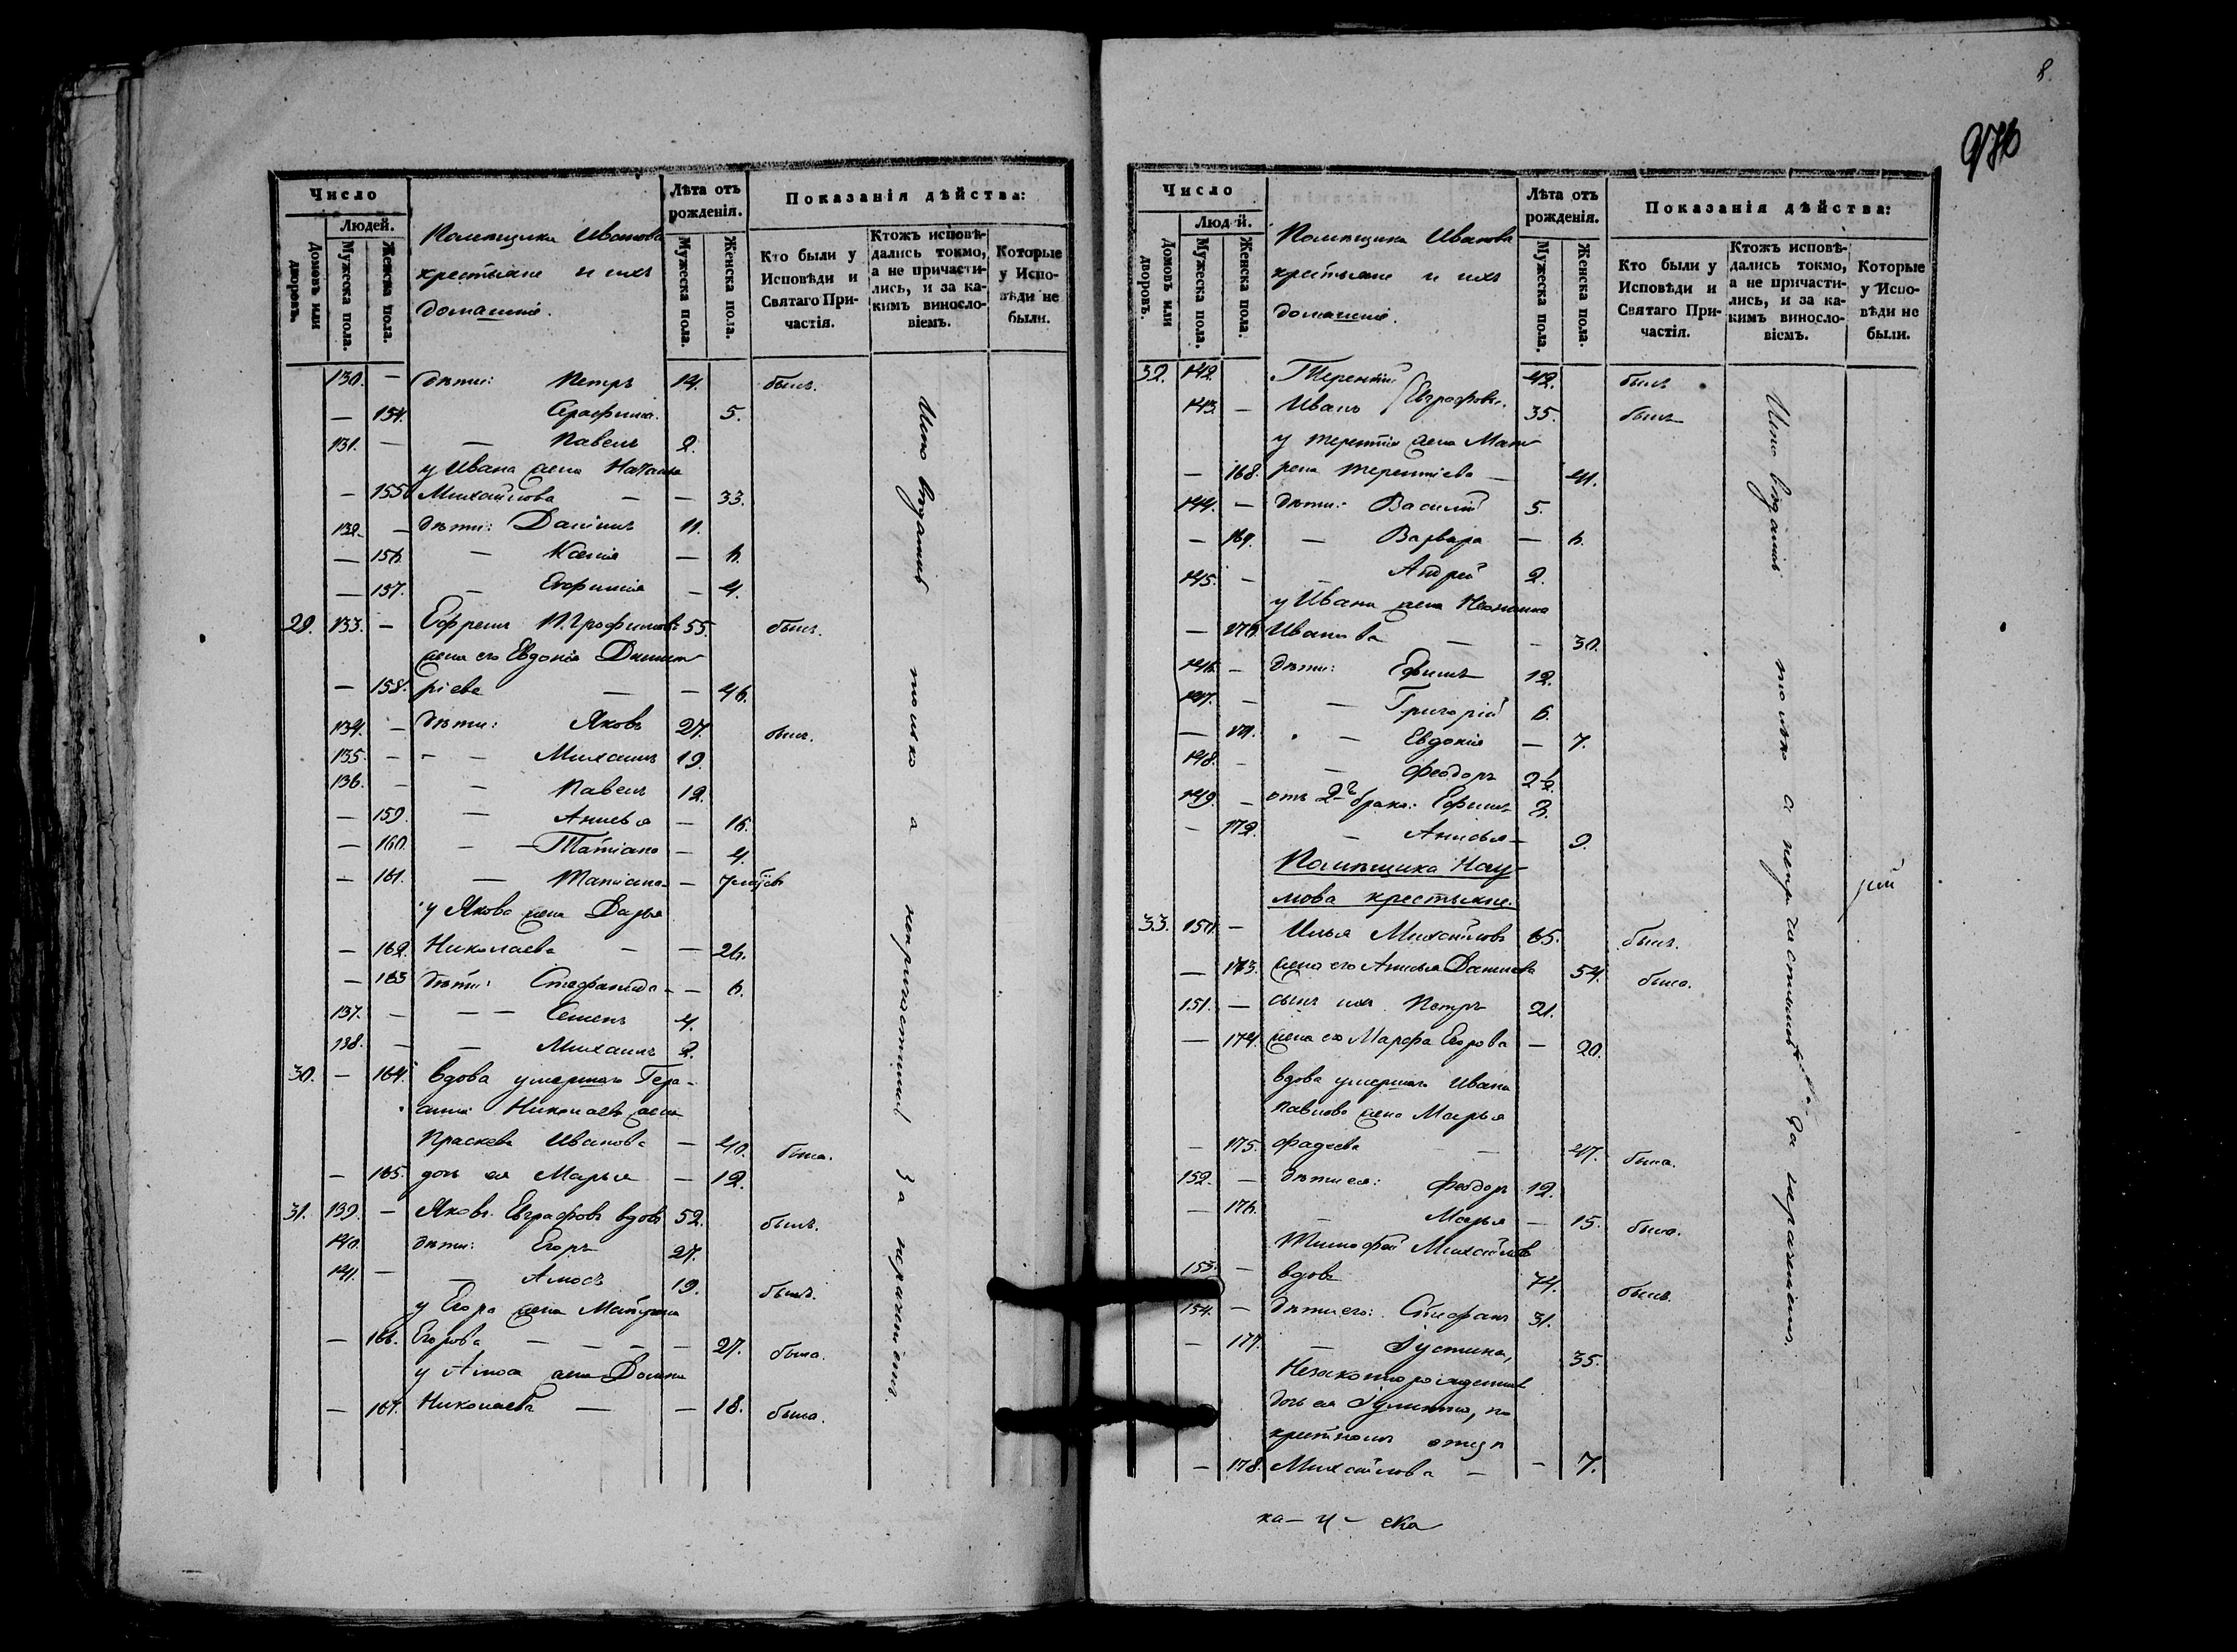 8.
Число
Людей.
Домовъ или дворовъ.
Мужеска пола.
Женска пола.
Помѣщика Иванова
крестьяне и ихъ
домашніе.
Лѣта отъ рожденія.
Мужеска пола.
Женска пола.
Показанія дѣйства:
Кто были у Исповѣди и Святаго Причастія.
Ктожъ исповѣдались токмо, а не причастились, и за какимъ винословіемъ.
Которые у Исповѣди не были.
130. — дѣти: Петръ 14. былъ.
— 154. Серафима. 5.
131. — — Павелъ 2.
у Ивана жена Наталья
— 155 Михайлова — — 33.
132. — дѣти: Даніилъ 11.
— 156. — Ксенія — 6.
— 157. — Евфимія — 4.
29. 133. — Ефремъ 55. былъ.
жена его Евдокія Димит
— 158. ріева — — 46.
134. — дѣти: Яковъ 27. былъ.
135. — — — Михаилъ 19.
136. — — Павелъ 12.
— 159. — Анисья — 16.
— 160. — — Татіана — 4.
— 161. — Татіана — 7
у Якова жена Дарья
— 162. Николаева — — 26.
— 163 дѣти: Стефанида — — 6.
137. — — — Семенъ 4.
138. — — Михаилъ 2.
30. — 164. вдова умершаго Гера-
сима Николаева жена
Праскева Иванова — 40. была.
— 165. дочь ея Марья — 12.
31. 139. — Яковъ Евграфовъ вдовъ 52. былъ.
140. дѣти: Егоръ 27.
141. — — Амосъ 19. былъ.
у Егора жена Матрона
— 166. Егорова — — — — 27. была.
у Амоса жена Домна
— 167. Николаева — — 18. была.
только а непричастились за
Число
Людей.
Домовъ или дворовъ.
Мужеска пола.
Женска пола.
Помѣщика Иванова
крестьяне и ихъ
домашніе.
Лѣта отъ рожденія.
Мужеска пола.
Женска пола.
Показанія дѣйства:
Кто были у Исповѣди и Святаго Причастія.
Ктожъ исповѣдались токмо, а не причастились, и за какимъ винословіемъ.
Которые у Исповѣди не были.
32. 142. Терентій 42. былъ
143. — Иванъ Евграфовы. 35. былъ
у Терентія жена Мат
— 168. рена Терентіева — 41.
144. — дѣти: Василій 5.
— 169. — Варвара — 6.
145. — — Андрей 2.
у Ивана жена
— 170. Иванова — — 30.
146. — дѣти: Ефимъ 12.
147. — — Григорій 6.
— 171. — Евдокія — 7.
148. — — Феодоръ 2½
149. — отъ 2го брака: Ефимъ 3.
— 172. — Анисья — 9.
Помѣщика Нау-
мова крестьяне.
33. 150. — Илья Михайловъ 65. былъ.
— 173. жена его Анисья Данилова 54. была.
151. — сынъ ихъ Петръ 21.
— 174. жена его Марфа Егорова — 20.
вдова умершаго Ивана
Павлова жена Марья
— 175. Фадеева — — 47. была.
152. — дѣти ея: Феодоръ 12.
— 176. — Марья — 15. была.
Тимофей Михайловъ
153. — вдовъ 74. былъ.
154. — дѣти его: Стефанъ 31.
— 177. — Іустина, 35.
Незаконнорожденная
дочь ея Іулитта, по
крестномъ отцѣ
— 178. Михайлова — — 7.
только а непричастились за